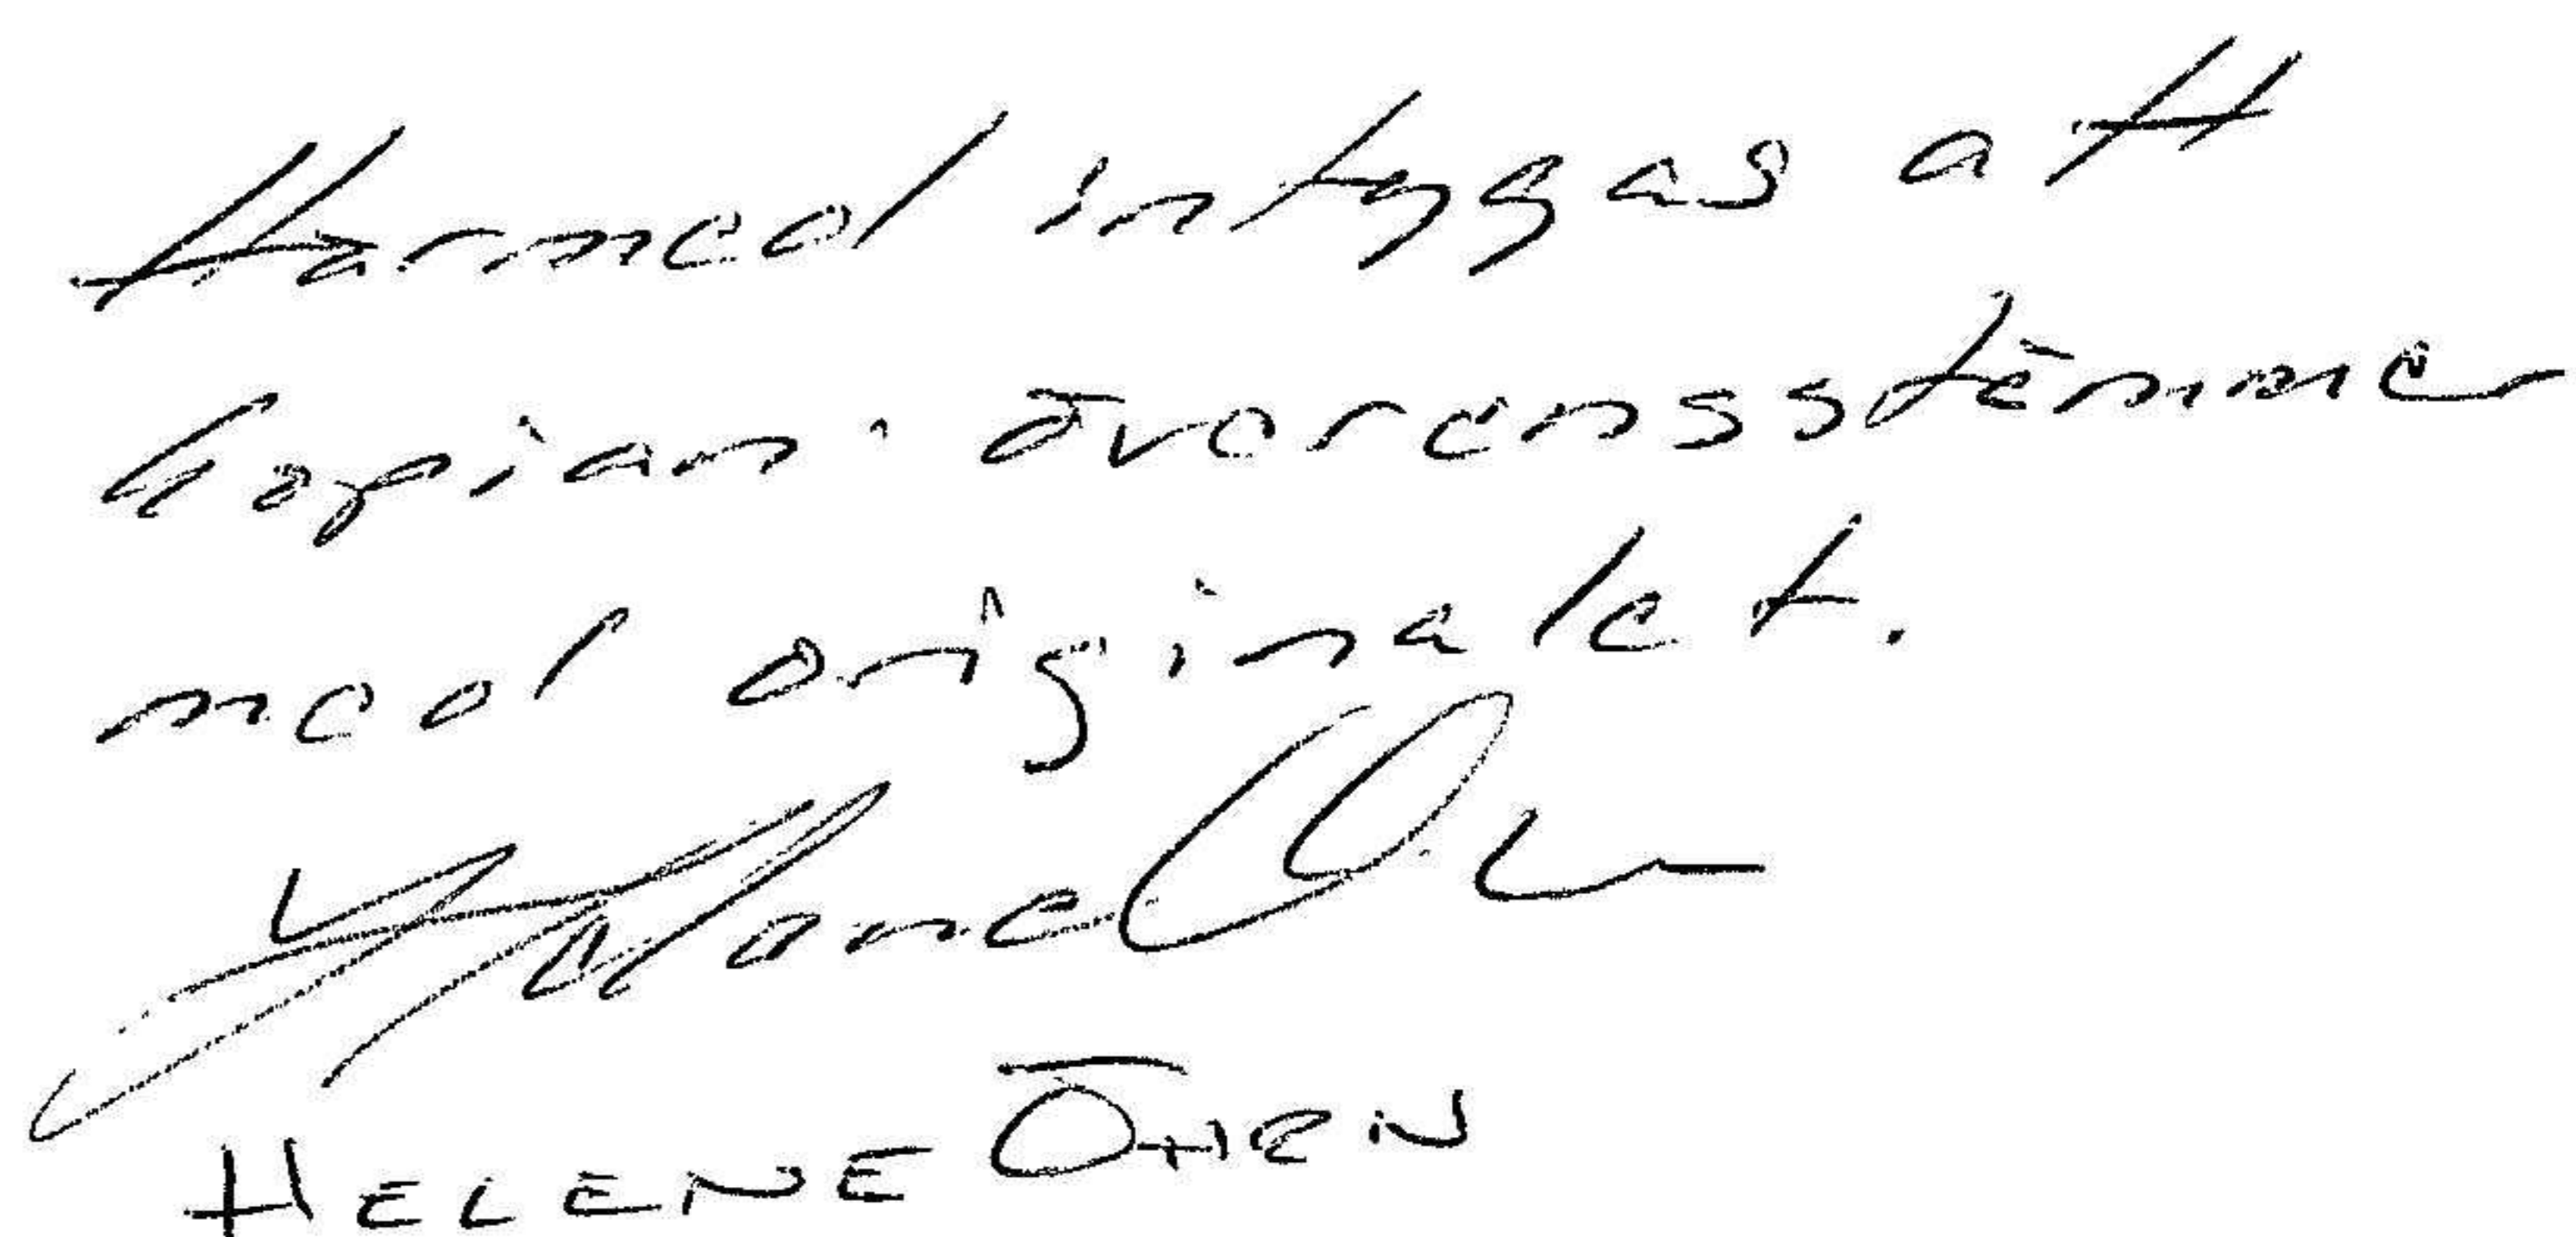 Härmed intygas att
kopian överensstämmer
med originalet.
HELENE ÖHRN